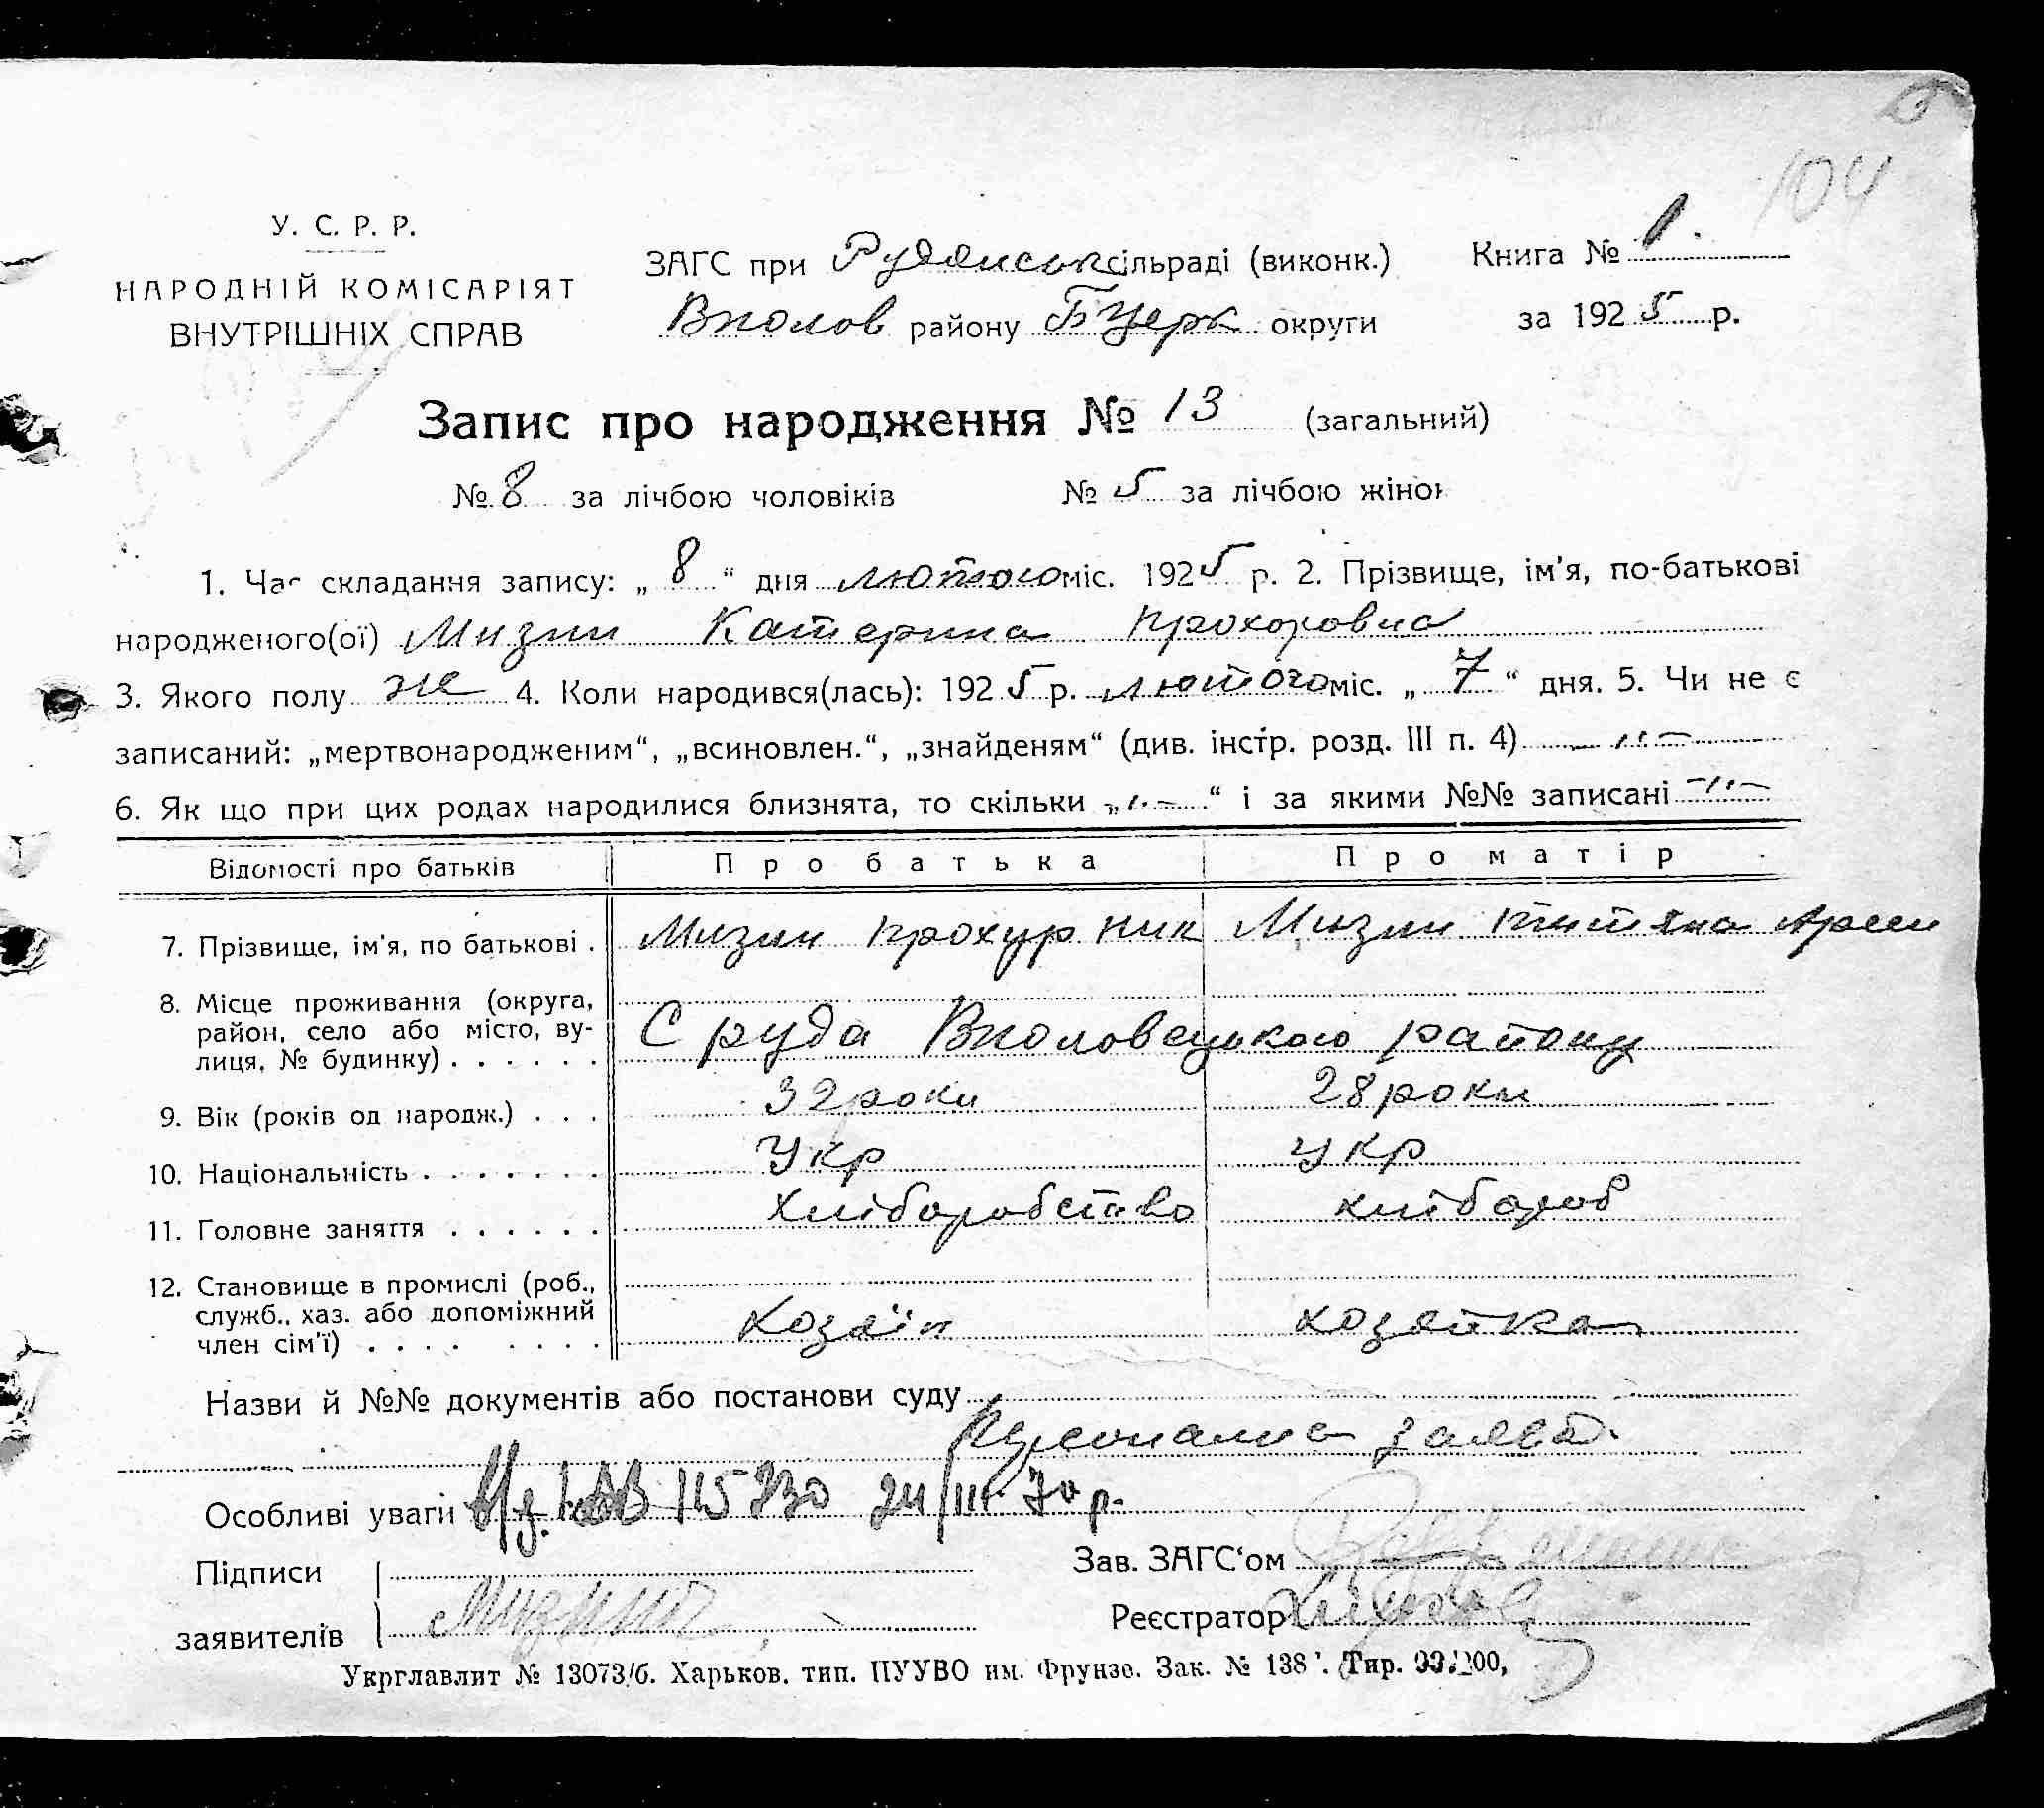 104
У. С. Р. Р.
НАРОДНІЙ КОМІСАРІЯТ
ВНУТРІШНІХ СПРАВ
ЗАГС при Рудянськ сільраді (виконк.)
Вполов району БЦерк округи
Книга № 1.
за 1925 р.
Запис про народження № 13 (загальний)
№ 8 за лічбою чоловіків № 5 за лічбою жінок
1. Час складання запису: „ 8 “ дня лютого міс. 1925 р. 2. Прізвище, ім'я, по-батькові
народженого(ої) Мизин Катерина Прохоровна
3. Якого полу же 4. Коли народився(лась): 1925 р. лютого міс. „ 7 “ дня. 5. Чи не є
записаний: „мертвонародженим“, „всиновлен.“, „знайденям“ (див. інстр. розд. III п. 4) —"—
6. Як що при цих родах народилися близнята, то скільки „—"—“ і за якими №№ записані —"—
Відомості про батьків Про батька Про матір
7. Прізвище, ім'я, по батькові . Мизин Прохур Ник Мизин Титяна Арсен
8. Місце проживання (округа,
район, село або місто, ву-
лиця, № будинку) . . . . . . С Руда Вполовецького району
9. Вік (років од народж.) . . . 32 роки 28 роки
10. Національність . . . . . . . Укр Укр
11. Головне заняття . . . . . . Хліборобство хлібороб
12. Становище в промислі (роб.,
служб., хаз. або допоміжний
член сім'ї) . . . . . . . . Хозаїн хозяйка
Назви й №№ документів або постанови суду
Персонална заява.
Особливі уваги 24/III 70 р.
Підписи
заявителів Мизин
Зав. ЗАГС‘ом
Реєстратор
Укрглавлит № 13073/б. Харьков, тип. ПУУВО им. Фрунзе. Зак. № 138